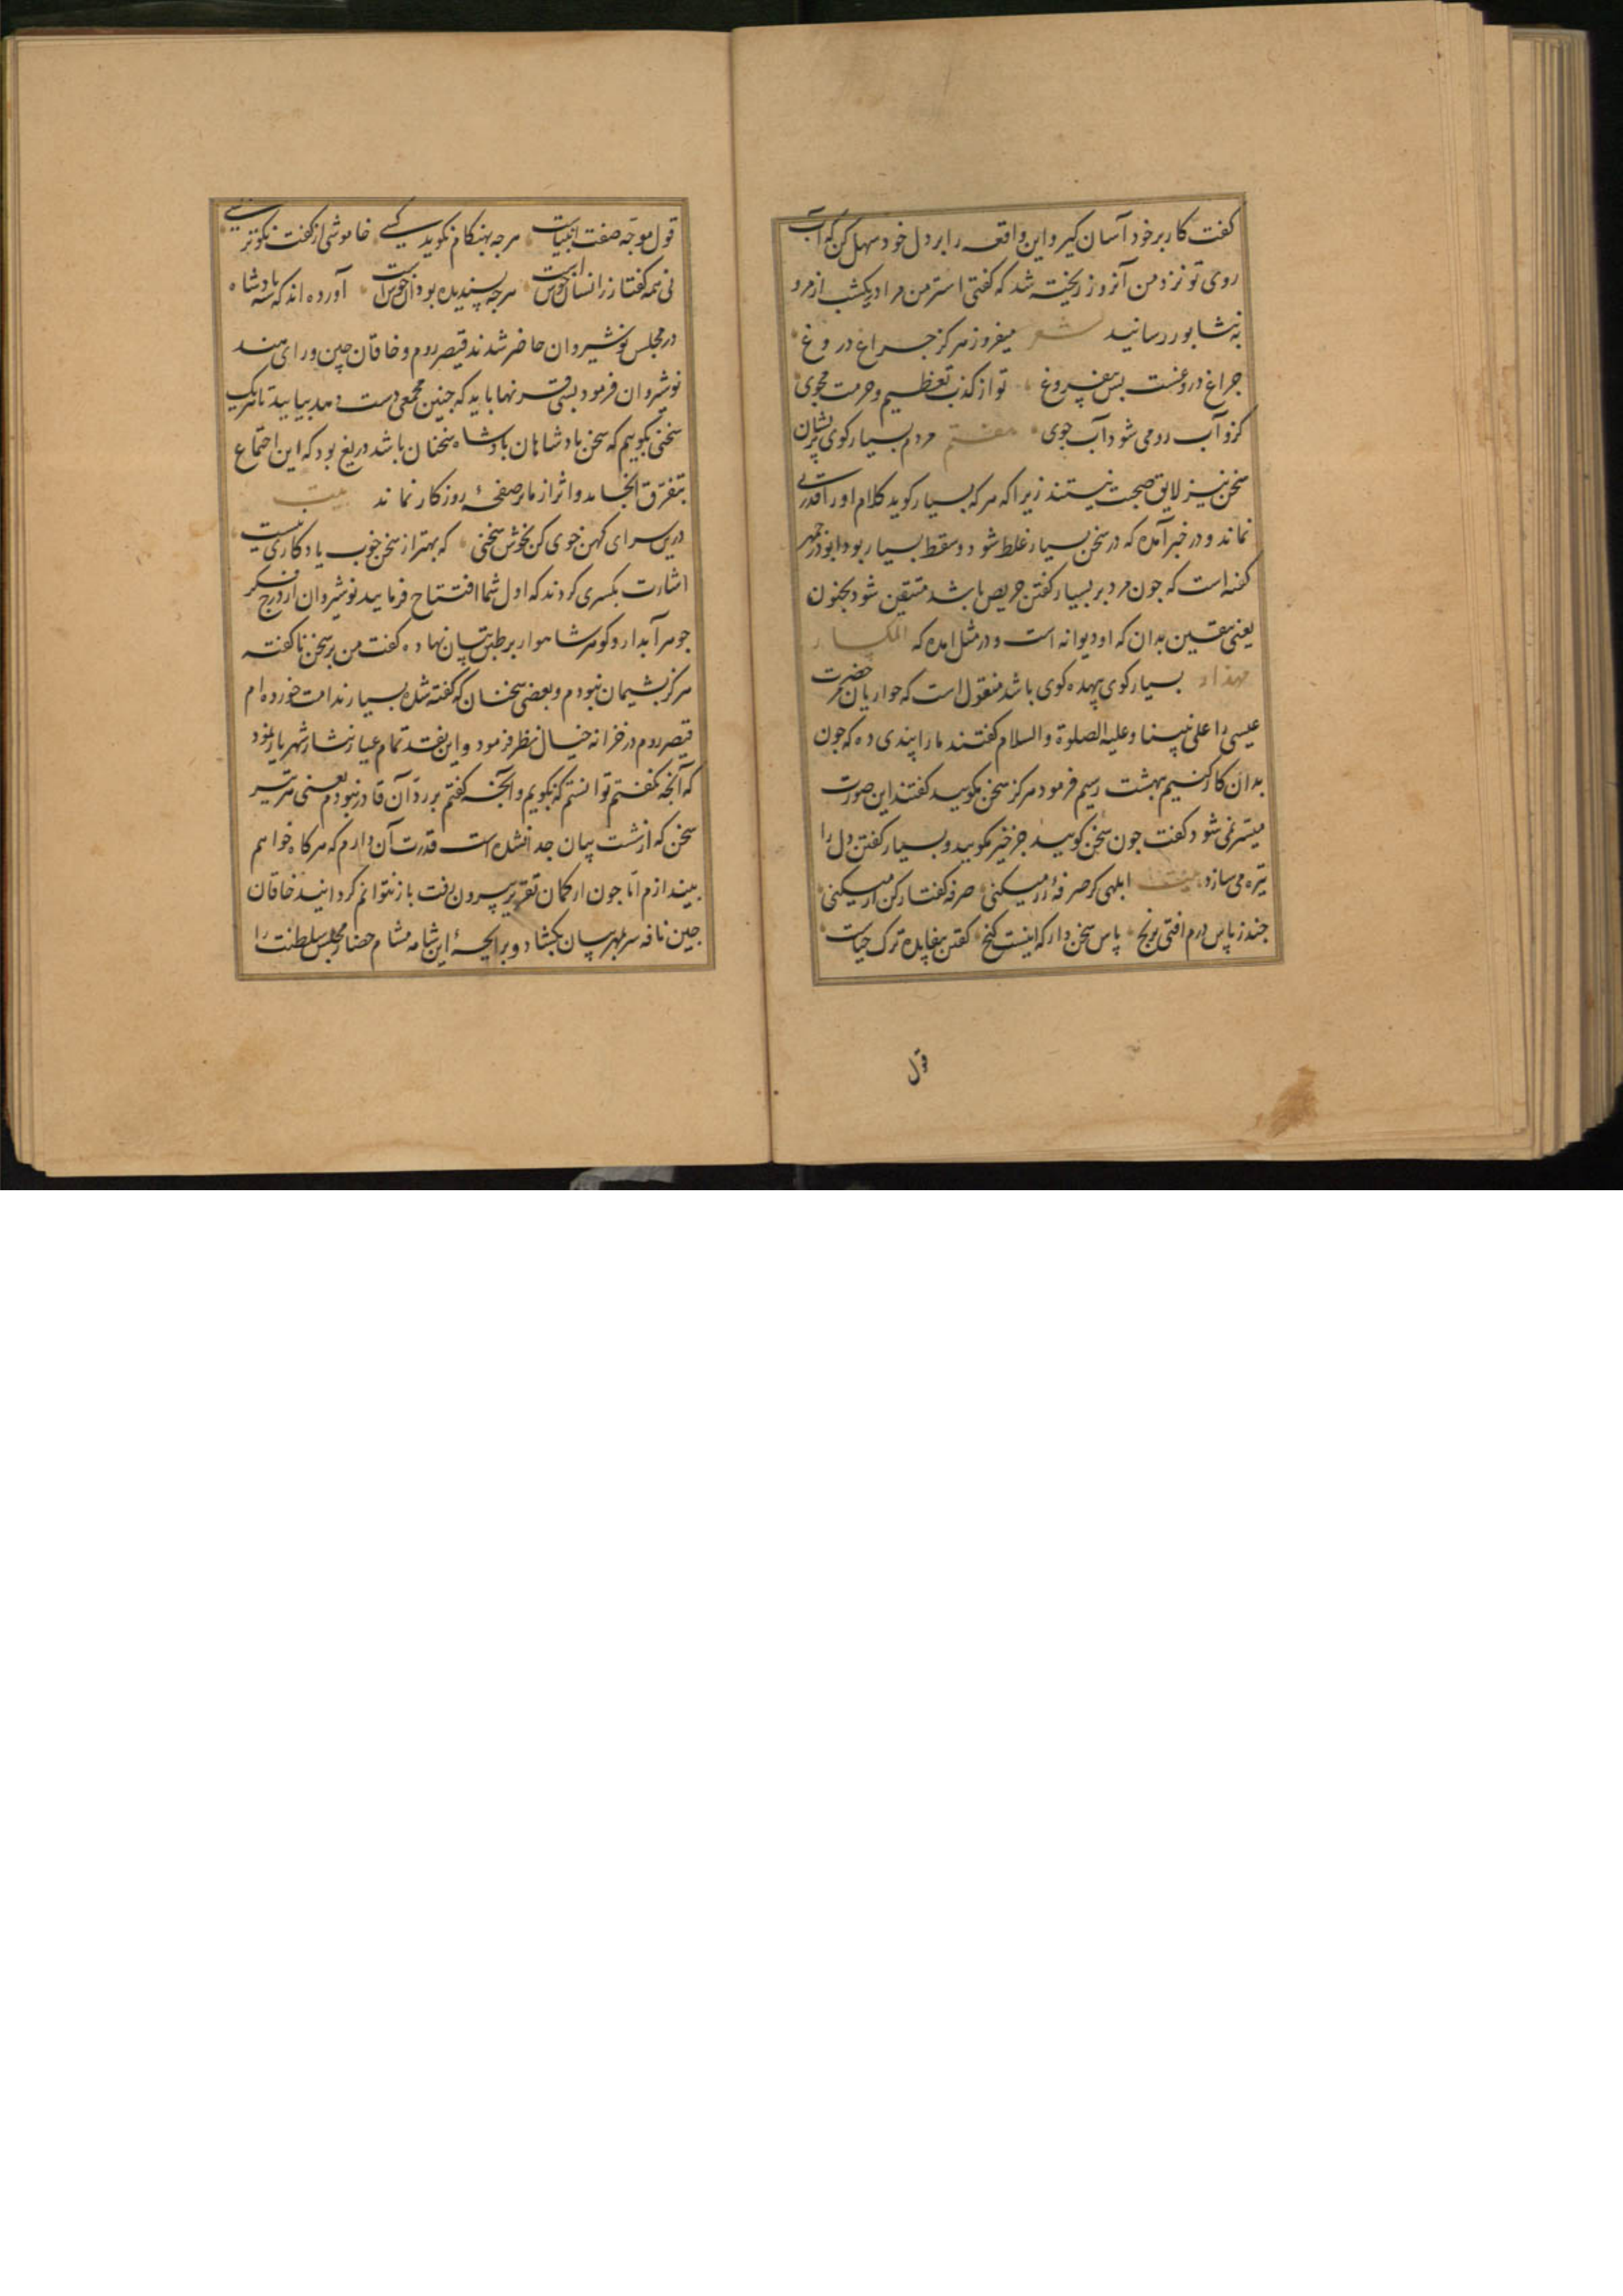 کفت کار بر خود آسان کیر و این واقعه را بر دل خود سهل کن که آب
روی تو نزد من آنروز ریخته شد که کفتی استر من مرا در یکشب از مرو
به نشابور رسانید شعر میفروز هرکز جراغ دروغ
جراغ دروغست بس بیفروغ تو از کذب تعظیم و حرمت مجوی
کزو آب رو می شود آب جوی هفتم مردم بسیار کوی پریشان
سخن نیز لایق صحبت نیستند زیرا که هر که بسیار کوید کلام او را قدری
نماند و در خبر آمده که در سخن بسیار غلط شود و سقط بسیار بود ابوذرجمهر
کفته است که جون مرد بر بسیار کفتن حریص باشد متیقن شو بجنون
یعنی یقین بدان که او دیوانه است و در مثل امده که المکسار
مهذار بسیار کوی بیهده کوی باشد منقول است که حواریان حضرت
عیسی را علی نبینا و علیه الصلوة والسلام کفتند ما را پندی ده که جون
بدان کار کنیم ببهشت رسیم فرمود هرکز سخن مکویید کفتند این صورت
میسر نمی شود کفت جون سخن کویید جز خیر مکویید و بسیار کفتن دل را
تیره می سازد ابلهی کر صرفهٔ زر میکنی صرفه کفتار کن ار میکنی
جند ز پاس درم افتی برنج پاس سخن دار که اینست کنج کفتن بیفایده ترک حیات
قول
قول موجه صفت انبیات هر جه بهنکام نکوید کسی خاموشی از کفت نکوتر بسی
نی همه کفتار ز انسان خوش است هر جه پسندیده بود آن خوش است آورده اند که سه پادشاه
در مجلس نوشیروان حاضر شدند قیصر روم و خاقان جین و رای هند
نوشروان فرمود بسی قرنها باید که جنین مجمعی دست دهد بیایید تا هر یک
سخنی بکوییم که سخن پادشاهان پادشاه سخنان باشد دریغ بود که این اجتماع
بتفرق انجامد و اثر از ما بر صفحهٔ روزکار نماند بیت
درین سرای کهن خوی کن بخوش سخنی که بهتر از سخن خوب یادکاری نیست
اشارت بکسری کردند که اول شما افتتاح فرمایید نوشروان از درج فکر
جوهر آبدار و کوهر شاهوار بر طبق بیان نهاده کفت من بر سخن ناکفته
هرکز پشیمان نبودم و بعضی سخنان که کفته شده بسیار ندامت خورده ام
قیصر روم در خزانه خیال نظر فرمود و این نقد تمام عیار نثار شهریار نمود
که آنجه نکفتم توانستم که بکویم و آنجه کفتم بر رد آن قادر نبودم یعنی هر تیر
سخن که از شست بیان جدا نشده است قدرت آن دارم که هر کاه خواهم
بیندازم اما جون از کمان تقریر بیرون رفت باز نتوانم کردانید خاقان
جین نافه سر بمهر بیان بکشاد و برایحهٔ این شامه مشام حضار مجلس سلطنت را